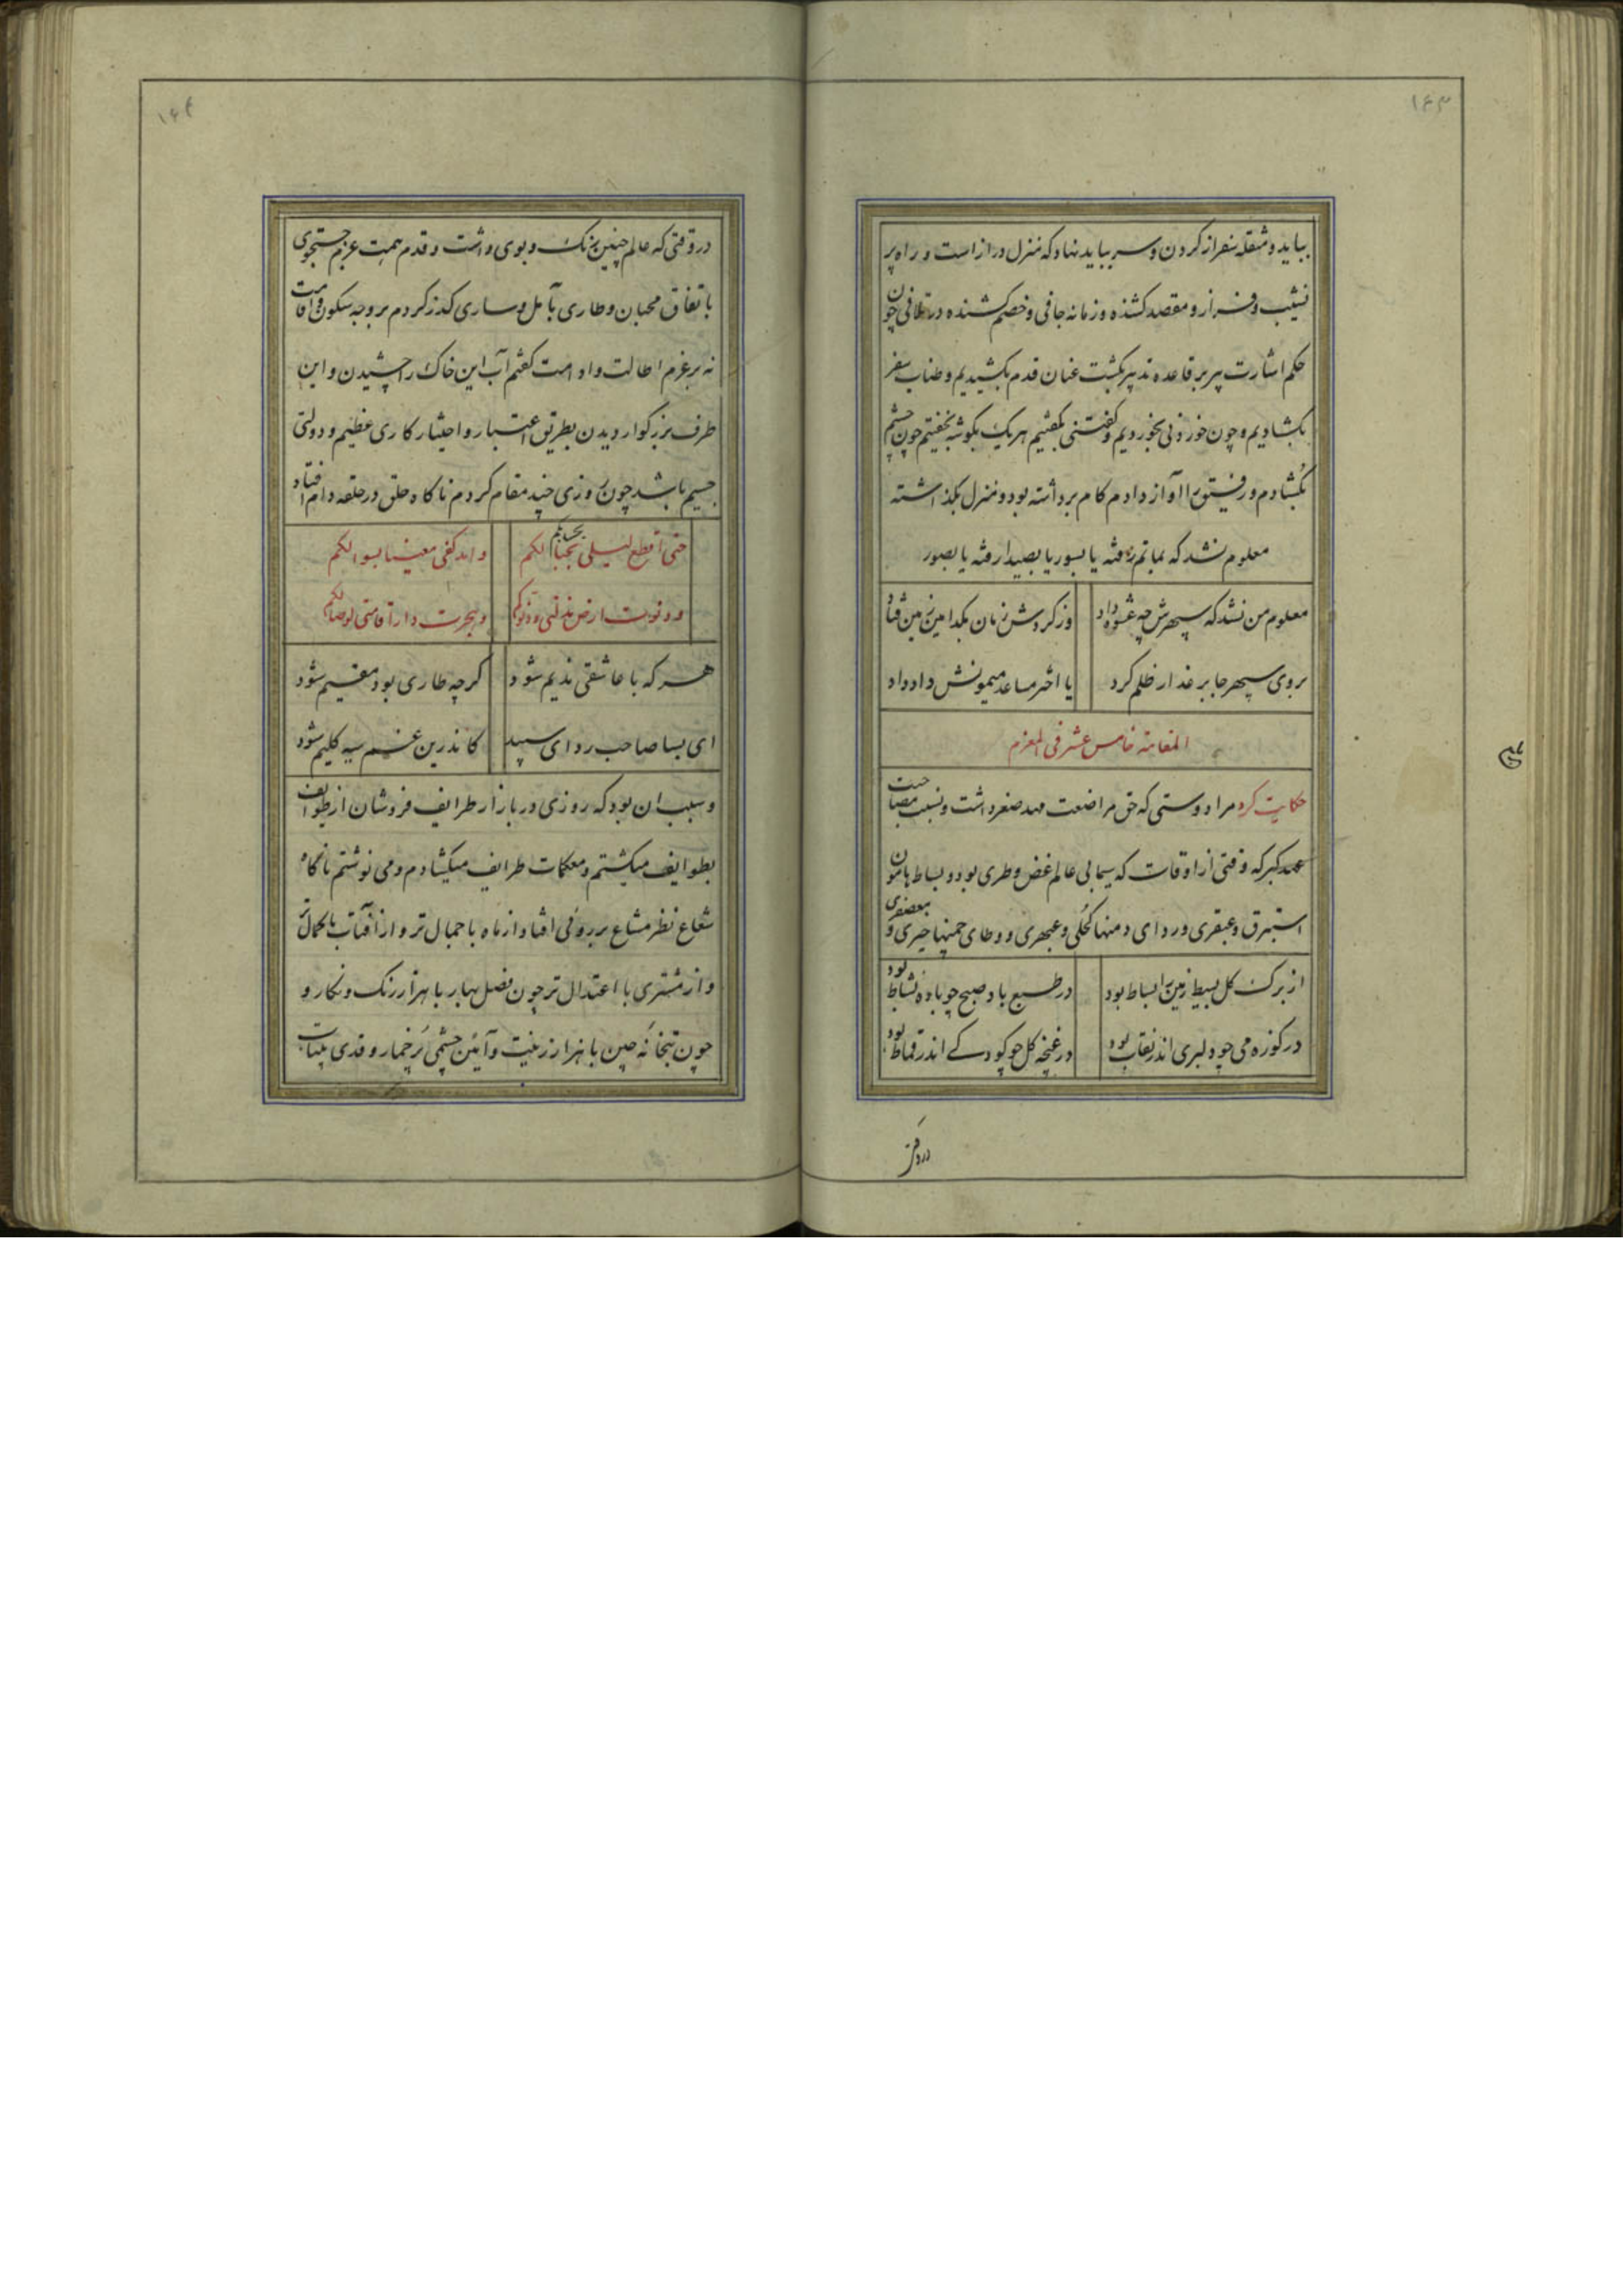 ۱۴۳
بباید و مثقله سفر از کردن و سر بباید نهاد که منزل دراز است و راه پر
نشیب و فراز و مقصد کشنده و زمانه جافی و خصم کشنده در تلافی چون
حکم اشارت پیر بر قاعده تدبیر بگشت عنان قدم بکشیدیم و طناب سفر
بکشادیم و چون خوردنی بخوردیم و کفتنی بکفتیم هر یک بکوشه بخفتیم چون چشم
بکشادم و رفیق را آواز دادم کام برداشته بود و منزل بکذاشته
معلوم نشد که بماتم رفته یا بسور یا بصیدا رفته یا بصور
معلوم من نشد که سپهرش چه عشوه داد
وز کردش زمان بکدامین زمین فتاد
بر وی سپهر جابر غدار ظلم کرد
یا اختر مساعد میمونش داد داد
المقامة خامس عشر فی العزم
حکایت کرد مرا دوستی که حق مراضعت مهد صغر داشت و نسبت مصاحبت
عهد کبر که وقتی از اوقات که سیمای عالم غض و طری بود و بساط هامون
استبرق و عبقری و ردای دمنها کحلی و عبهری و وطای چمنها حیری و معصفری
از برک کل بسیط زمین را بساط بود
در طبع باد صبح چو باده نشاط بود
در کوزه می چو دلبری اندر نقاب بود
در غنچه کل چو کودکے اندر قماط بود
در وقتی
۱۴۴
در وقتی که عالم چنین رنک و بوی داشت و قدم همت عزم جستجوی
باتفاق محبان وطاری بآمل و ساری کذر کردم بر وجه سکون و اقامت
نه بر عزم اطالت و ادامت کفتم آب این خاک را چشیدن و این
طرف بزرکوار دیدن بطریق اعتبار و اختیار کاری عظیم و دولتی
جسیم باشد چون روزی چند مقام کردم ناکاه حلق در حلقه دام افتاد
حتی اقطع لیلی بحبالکم
وابد کفی مغنیا بسوالکم
ودنوت ارض مذلتی
وهجرت دار اقامتی لوصالکم
هر که با عاشقی ندیم شود
کرچه طاری بود مقیم شود
ای بسا صاحب ردای سپید
کاندرین غم سیه کلیم شود
و سبب ان بود که روزی در بازار طرایف فروشان از طوایف
بطوایف میکشتم و معکمات طرایف میکشادم و می نوشتم ناکاه
شعاع نظر مشاع بر روئی افتاد از ماه با جمال تر و از آفتاب با کمال تر
و از مشتری با اعتدال تر چون فصل بهار با هزار رنک و نکار و
چون بتخانه چین با هزار زینت و آئین چشمی پر خمار و قدی